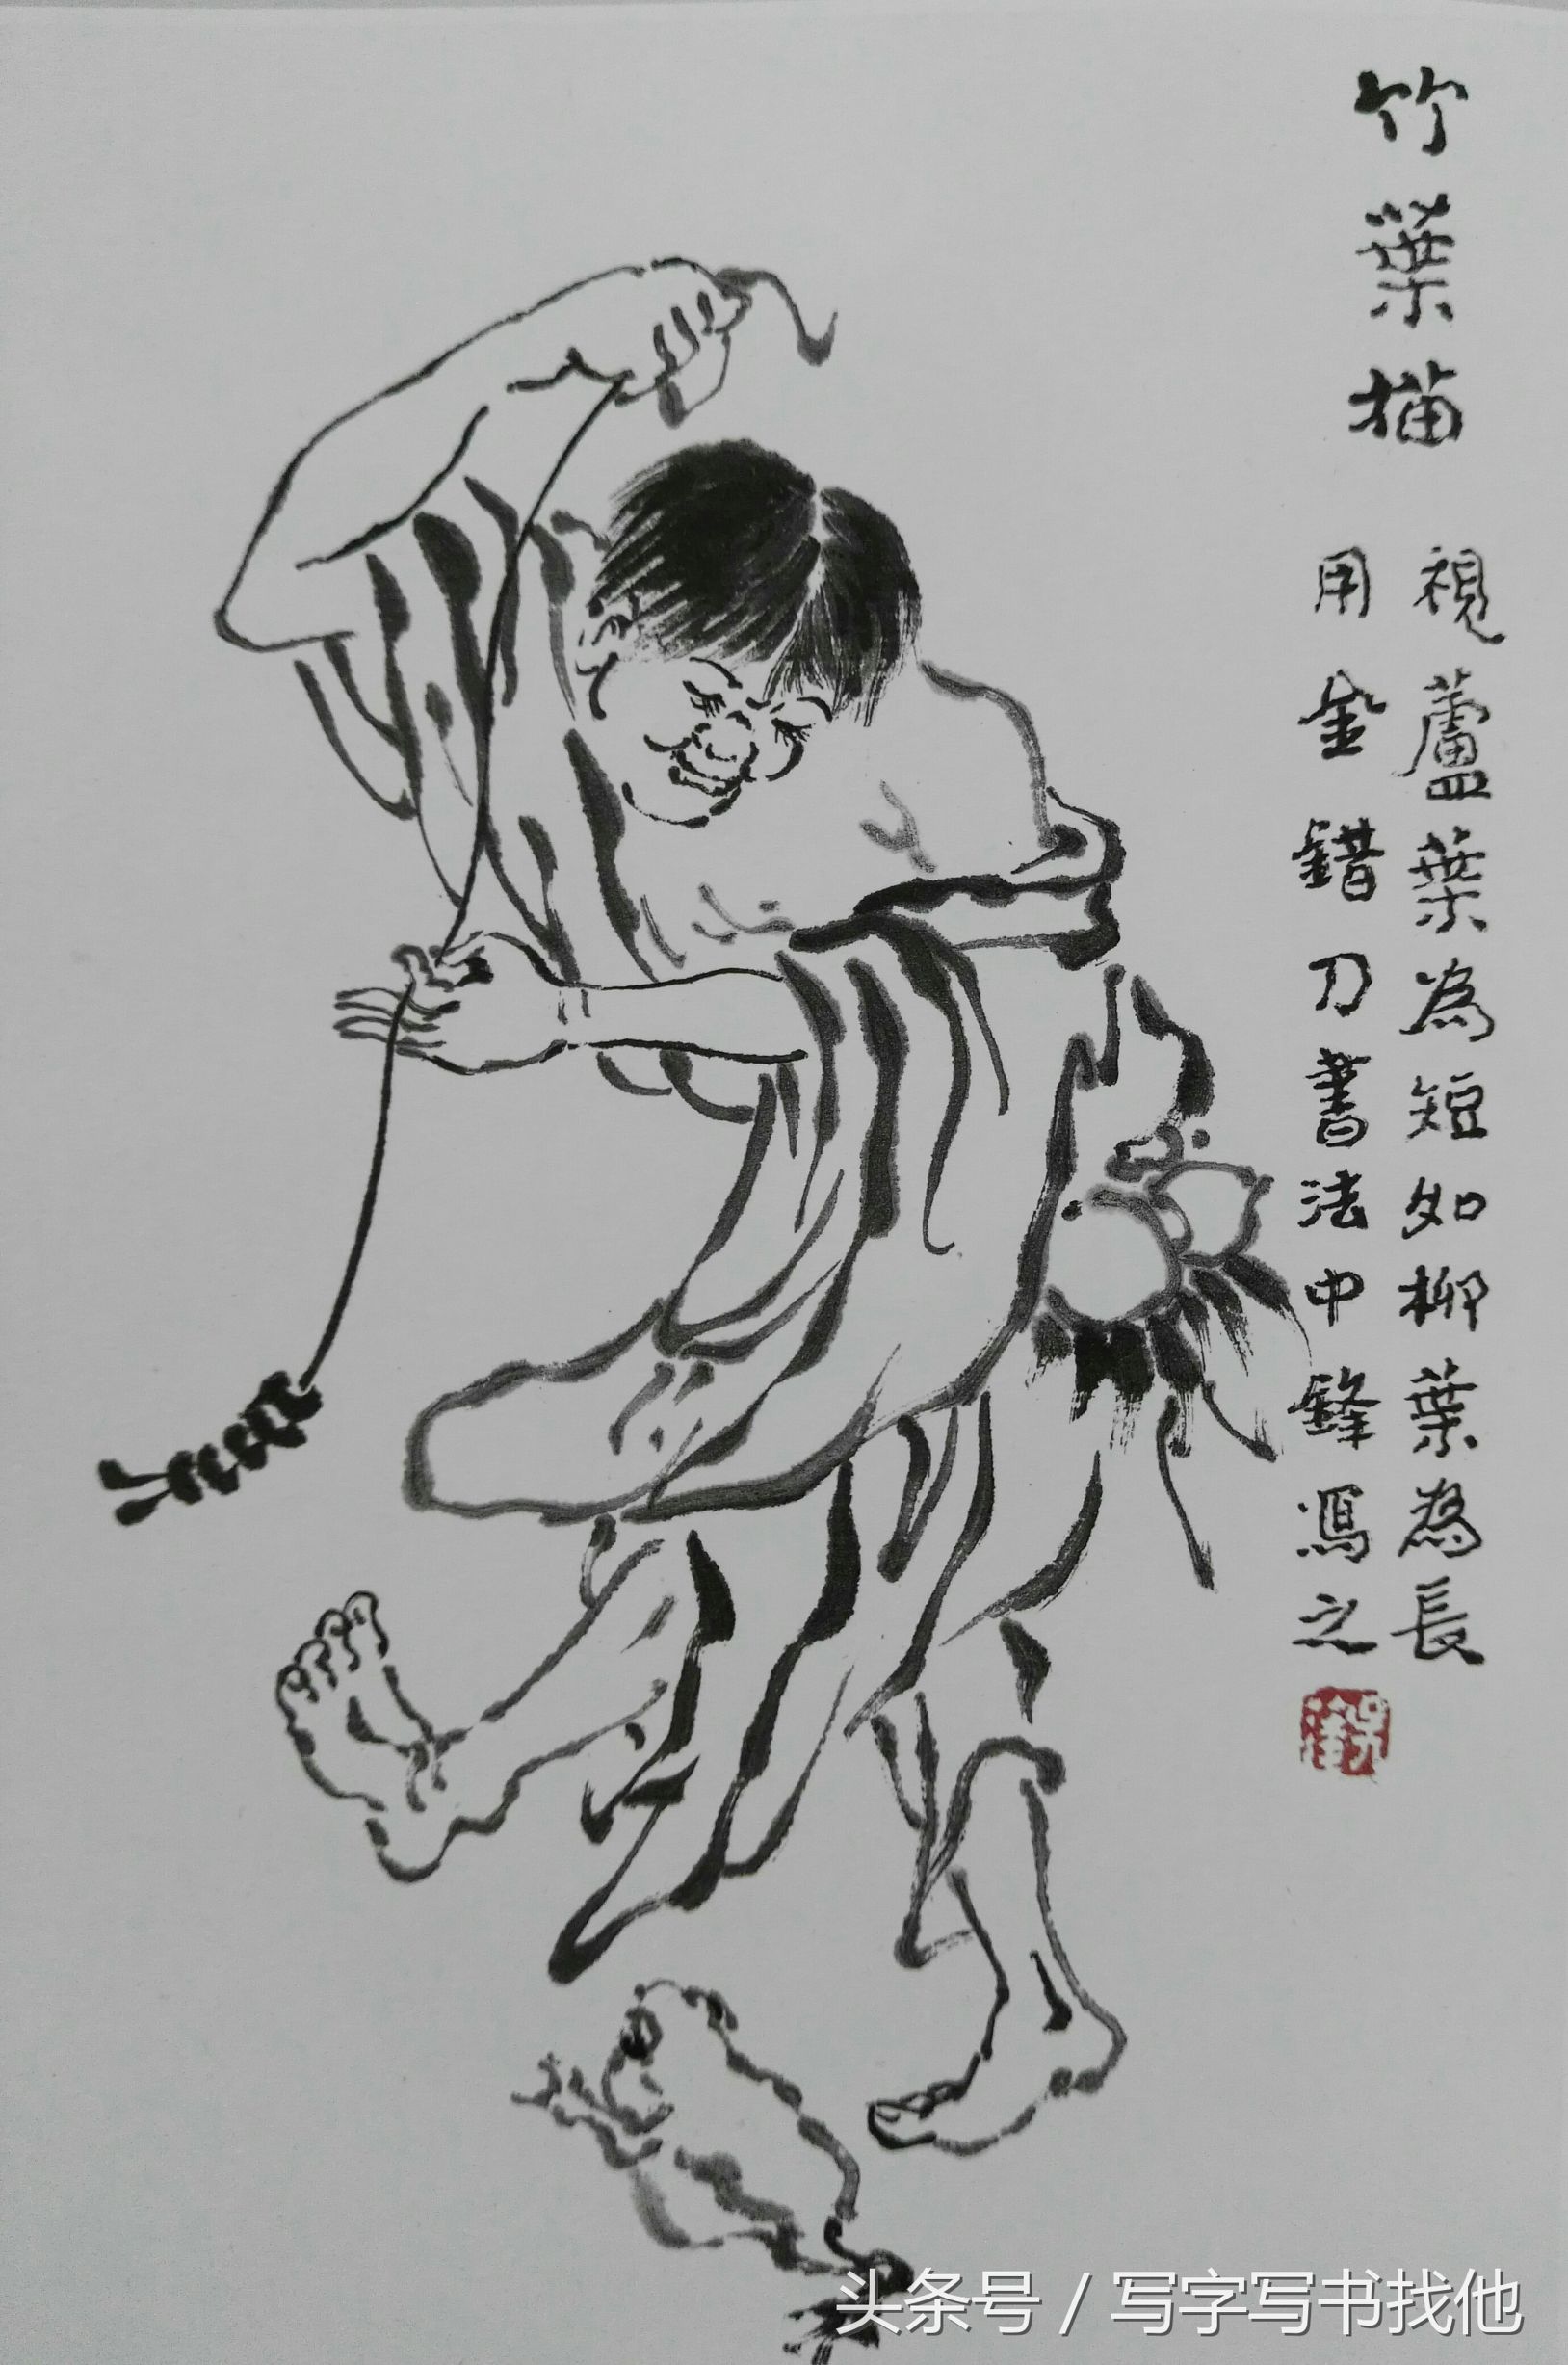 竹葉描
視蘆葉為短如柳葉為長
用金錯刀書法中鋒寫之
头条号 / 写字写书找他